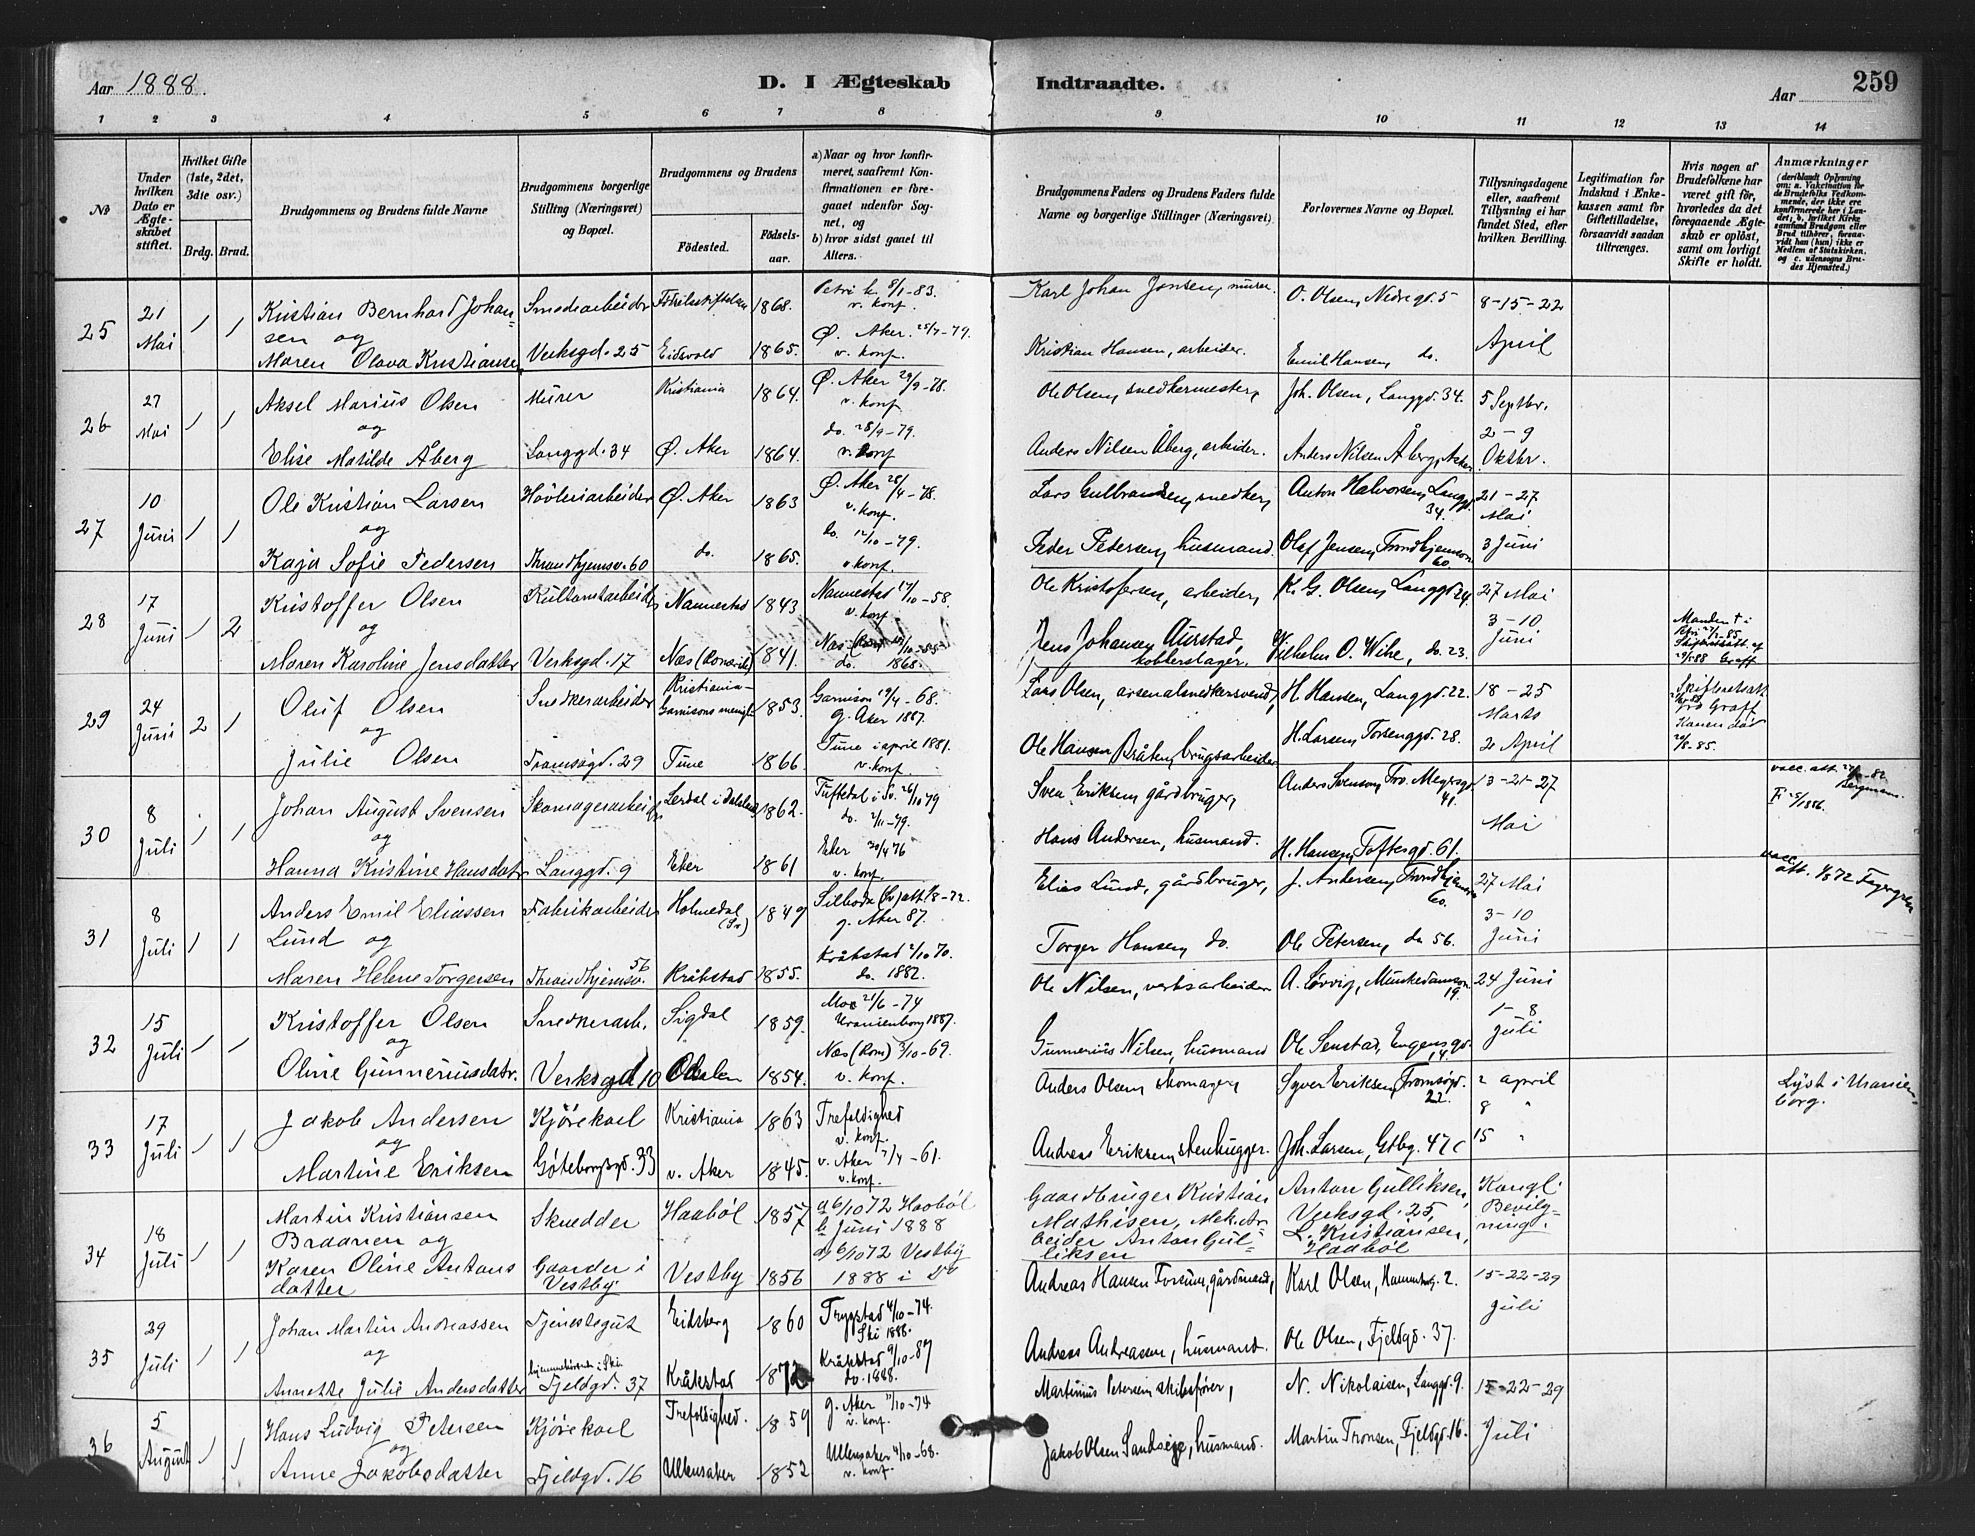 Aar 1888.
D. I Ægteskab Indtraadte.
Aar 259
1 2 3 4 5 6 7 8 9 10 11 12 13 14
No
Under hvilken Dato er Ægteskabet stiftet.
Hvilket Gifte (1ste, 2det, 3die osv.)
Brdg. Brud.
Brudgommens og Brudens fulde Navne
Brudgommens borgerlige Stilling (Næringsvei) og Bopæl.
Brudgommens og Brudens
Fødested. Fødselsaar.
a) Naar og hvor konfirmeret, saafremt Konfirmationen er foregaaet udenfor Sognet, og
b) hvor sidst gaaet til Alters.
Brudgommens Faders og Brudens Faders fulde Navne og borgerlige Stillinger (Næringsvei).
Forlovernes Navne og Bopæl.
Tillysningsdagene eller, saafremt Tillysning ei har fundet Sted, efter hvilken Bevilling.
Legitimation for Indskud i Enkekassen samt for Giftetilladelse, forsaavidt saadan tiltrænges.
Hvis nogen af Brudefolkene har været gift før, hvorledes da det foregaaende Ægteskab er opløst, samt om lovligt Skifte er holdt.
Anmærkninger (deriblandt Oplysning om: a. Vakcination for de Brudefolks Vedkommende, der ikke ere konfirmerede her i Landet; b. hvilket Kirkesamfund Brudgom eller Brud tilhører, forsaavidt han (hun) ikke er Medlem af Statskirken, og c. udensogns Brudes Hjemsted.)
25 21 Mai 1 1
Kristian Bernhard Johansen og
Smedearbeider Fødselsstiftelsen 1868. Petri k. 8/1-83. v. konf.
Karl Johan Jonsen, murer. O. Olsen, Nedregd. 5 8-15-22 April
Maren Olava Kristiansen Verksgd. 25 Eidsvold 1865. Ø. Aker. 25/7-79. v. konf.
Kristian Hansen, arbeider. Emil Hansen, do.
26 27 Mai 1 1
Aksel Marius Olsen og Murer Kristiania 1864. Ø. Aker 29/9-78. v. konf.
Ole Olsen, snedkermester, Joh. Olsen, Langgd. 34. 5 Septbr.
Elise Matilde Åberg Langgd. 34 Ø. Aker 1864. do. 28/9-79. v. konf
Anders Nilsen Åberg, arbeider. Anders Nilsen Åberg, Aker 2-9 Oktbr.
27 10 Juni 1 1
Ole Kristian Larsen og Høvleriarbeider Ø. Aker 1863 Ø. Aker 28/4-78. v. konf.
Lars Gulbrandsen, snedker, Anton Halvorsen, Langgd. 34. 21-27 Mai
Kaja Sofie Pedersen Throndhjemsv. 60 do. 1865. do. 12/10-79. v. konf.
Peder Petersen, husmand. Olaf Jensen, Trondhjemsv. 60 3 Juni
28 17 Juni 1 2
Kristoffer Olsen og Nannestad 1843 Nannestad 17/10-58. v. konf
Ole Kristofersen, arbeider, K. G. Olsen, Langgd. 24. 27 Mai
Maren Karoline Jensdatter Verksgd. 17 Næs (Romerike) 1841. do. 1868.
Jens Johansen Aurstad, kobberslager. Wilhelm O. Wike, do. 23. 3-10 Juni
Manden † i Petri
29 24 Juni 2 1
Oluf Olsen og Snedkerarbeider Kristiania Garnisons menigh 1853. Garnison 19/4-68. g. Aker 1887.
Lars Olsen, arsenalsnedkersvend, H. Hansen, Langgd. 22. 18-25 Marts
Julie Olsen Tromsøgd. 29 Tune 1866. Tune i april 1881. v. konf.
Ole Hansen Bråten, brugsarbeider H. Larsen, Torsenggd. 28. 2 April
Skifteretsatt. fra Graff Konen død 20/8-85.
30 8 Juli 1 1
Johan August Svensen og Skomagerarbeider Lerdal i Dalsland 1862. Tuftedal i Sv. 26/10 79 do. 2/11-79.
Sven Eriksen, gårdbruger, Anders Svenson, Tro. Meyersgd. 41. 13-21-27 Mai
Hanna Kristine Hansdatr Langgd. 9 Eker 1861 Eker 30/4 76 v. konf.
Hans Andersen, husmand. H. Hansen, Toftesgd. 61.
vacc. att. Bergmann.
31 8 Juli 1 1
Anders Emil Eliassen Lund og Fabrikarbeider Holmedal (Sv) 1849 Silbodal (Sv) att. 1/8-72. g. Aker 87.
Elias Lund, gårdbruger, J. Andersen, Trondhjemsv. 60. 27 Mai
Maren Helene Torgersen Throndhjemsv. 56 Kråkstad 1855. Kråkstad 2/10 70. do. 1882.
Torger Hansen, do. Ole Petersen, do 56. 3-10 Juni
vacc. att. 1/8 72 Fagergren
32 15 Juli 1 1
Kristoffer Olsen og Snedkerarb. Sigdal 1859. Mos 21/6-74 Uranienborg 1887.
Ole Nilsen, verksarbeider A. Løvvig, Munkedamsv. 19. 24 Juni
Oline Gunneriusdatr. Verksgd 10 Odalen 1854. Næs (Rom) 3/10-69. v. konf.
Gunnerius Nilsen, husmand Ole Senstad, Eugensgd. 14. 1-8 Juli
33 17 Juli 1 1
Jakob Andersen og Kjørekarl Kristiania 1863 Trefoldighed v. konf.
Anders Olsen, skomager, Syver Eriksen, Tromsøgd. 22. 2 april 8 "
Martine Eriksen Göteborgsgd. 33 v. Aker 1845. v. Aker 7/4-61. v. konf.
Andreas Eriksen, stenhugger. Joh. Larsen, Gtbg. 47c 15 "
Lyst i Uranienborg.
34 18 Juli 1 1
Martin Kristiansen Braanen og Skredder Haabøl 1857 a 6/10 72 Haabøl b Juni 1888
Karen Oline Antonsdatter Gaarder i Vestby Vestby 1856 a 6/10 72 Vestby 1888 i Do
Gaardbruger Kristian Mathisen, Mek. Arbeider Anton Gulliksen
Anton Gulliksen, Verksgd. 25, L. Kristiansen, Haabøl
Kongl. Bevilgning.
35 29 Juli 1 1
Johan Martin Andreassen og Tjenestegut Eidsberg 1860 Trygstad 4/10-74. Ski 1886.
Andreas Hansen Forsum, gårdmand, Karl Olsen, 15-22-29 Juli
Annette Julie Andersdatter hjemmehørende i Ski Fjeldgd. 37 Kråkstad Kråkstad 9/10-87 do. 1888.
Andreas Andreasen, husmand. Ole Olsen, Fjeldgd. 37.
36 5 August 1 1
Hans Ludvig Petersen og Kjørekarl Trefoldighed. 1859 g. Aker 11/10-74 v. konf.
Martinius Petersen, skibsfører, N. Nikolaisen, Langgd. 9. 15-22-29 Juli
Anne Jakobsdatter Fjeldgd. 16 Ullensaker 1852 Ullensaker 4/10-68. v. konf.
Jakob Olsen Sandseje, husmand. Martin Tronsen, Fjeldgd. 16.